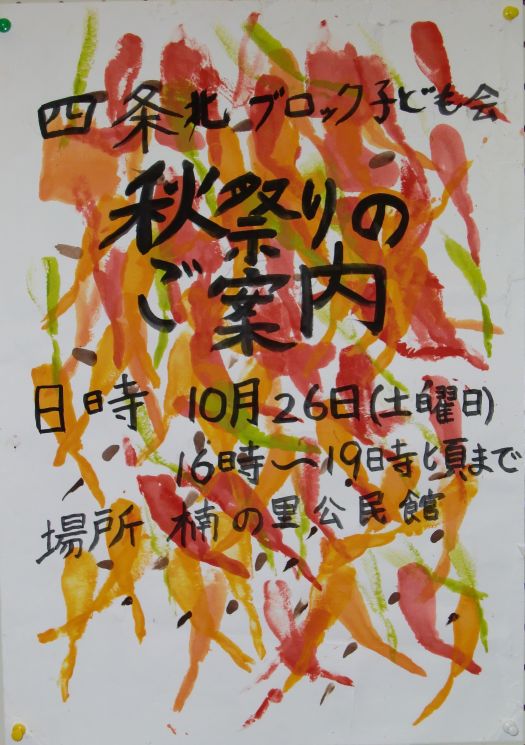 四条北ブロック子ども会
秋祭りの
ご案内
日時 10月26日(土曜日)
16時〜19時頃まで
場所 楠の里公民館